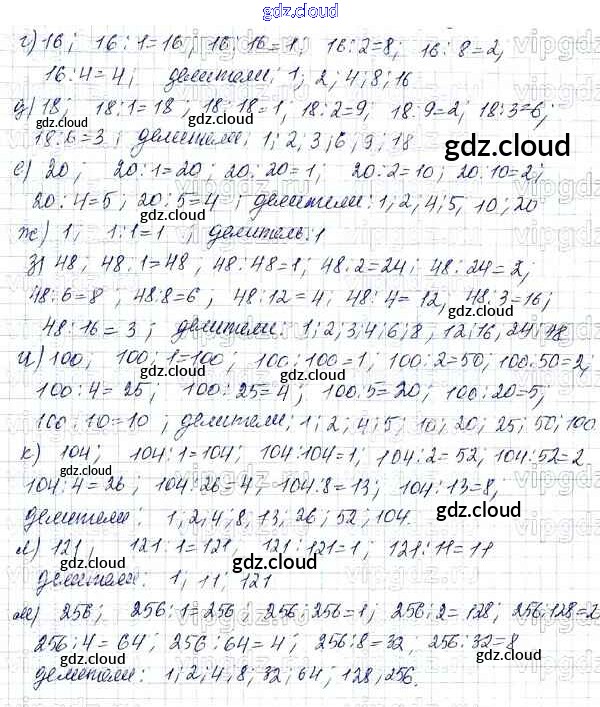 gdz.cloud
г) 16; 16:1=16, 16:16=1; 16:2=8, 16:8=2,
16:4=4; делители: 1; 2, 4; 8; 16
gdz.cloud
д) 18; 18:1=18; 18:18=1, 18:2=9, 18:9=2, 18:3=6;
18:6=3; делители: 1; 2; 3; 6; 9; 18
gdz.cloud gdz.cloud
е) 20, 20:1=20; 20:20=1; 20:2=10; 20:10=2;
20:4=5; 20:5=4; делители: 1, 2, 4; 5, 10; 20
gdz.cloud
ж) 1; 1:1=1; делитель: 1
з) 48; 48:1=48; 48:48=1; 48:2=24; 48:24=2,
gdz.cloud
48:6=8; 48:8=6; 48:12=4; 48:4=12, 48:3=16;
gdz.cloud
48:16=3; делители: 1; 2; 3; 4; 6; 8, 12; 16, 24; 48
и) 100; 100:1=100; 100:100=1; 100:2=50; 100:50=2;
gdz.cloud
100:4=25; 100:25=4; 100:5=20; 100:20=5;
100:10=10; делители: 1; 2; 4; 5; 10; 20; 25; 50; 100
к) 104; 104:1=104; 104:104=1; 104:2=52, 104:52=2
gdz.cloud
104:4=26; 104:26=4; 104:8=13; 104:13=8,
gdz.cloud
делители: 1, 2; 4; 8; 13; 26; 52; 104.
л) 121; 121:1=121, 121:121=1; 121:11=11
gdz.cloud gdz.cloud
делители: 1; 11; 121
м) 256; 256:1=256; 256:256=1; 256:2=128; 256:128=2
256:4=64; 256:64=4; 256:8=32, 256:32=8
gdz.cloud gdz.cloud
делители: 1; 2; 4, 8; 32; 64, 128, 256.